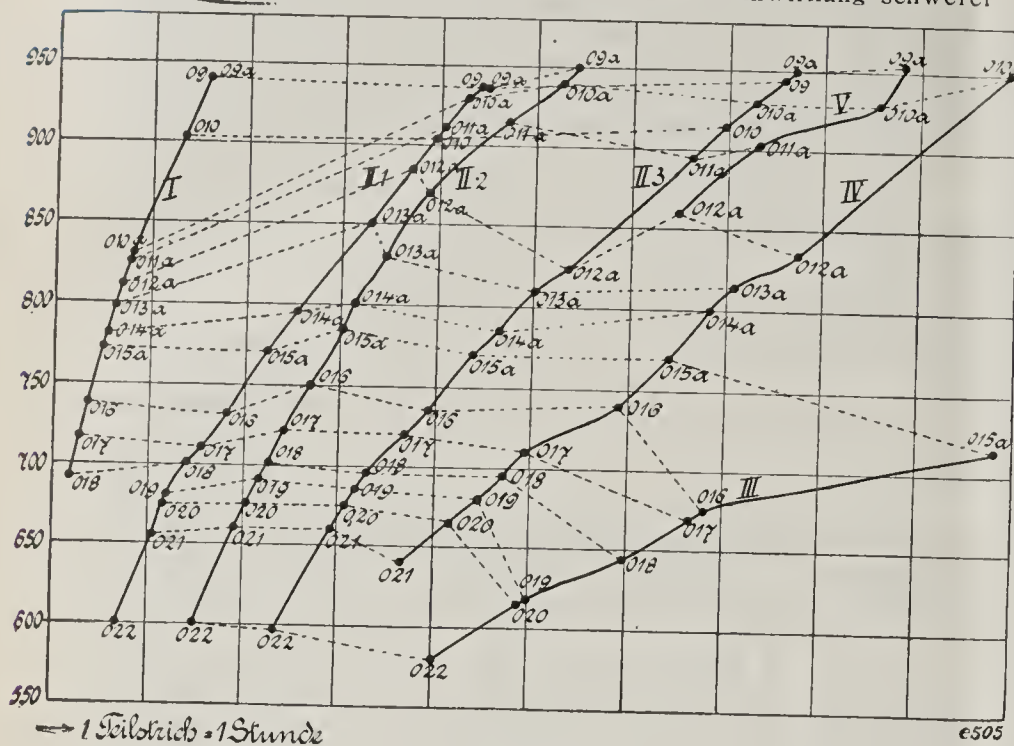 schwerer
950
900
850
800
750
700
650
600
550
I
09 09a
010
010a
011a
012a
013a
014a
015a
016
017
018
II1
09 09a
010a
011a
010
012a
013a
014a
015a
016
017
018
019
020
021
022
II2
09a
010a
011a
012a
013a
014a
015a
016
017
018
019
020
021
022
II3
09a
09
010a
010
011a
012a
013a
014a
015a
016
017
018
019
020
021
022
V
09a
010a
011a
012a
IV
010
012a
013a
014a
015a
016
017
018
019
020
021
III
015a
016
017
018
019
020
022
1 Teilstrich = 1 Stunde
e505